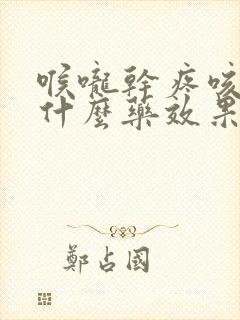 喉嚨幹疼咳
什麼藥效果
鄭占國